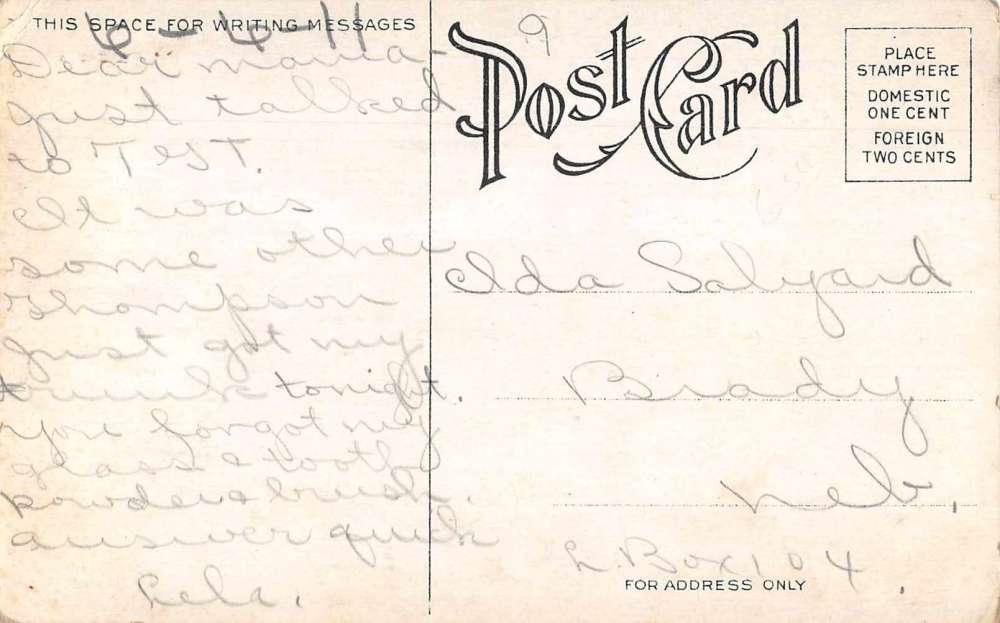 THIS SPACE FOR WRITING MESSAGES
6-6-11
Dear mama-
just talked
to T G T.
It was
some other
Thompson
Just got my
trunk tonight.
You forgot my
glass & tooth
powder & brush.
answer quick
Lela.
9
Post Card
PLACE
STAMP HERE
DOMESTIC
ONE CENT
FOREIGN
TWO CENTS
Ida Salyard
Brady
Neb.
L. Box 104.
FOR ADDRESS ONLY